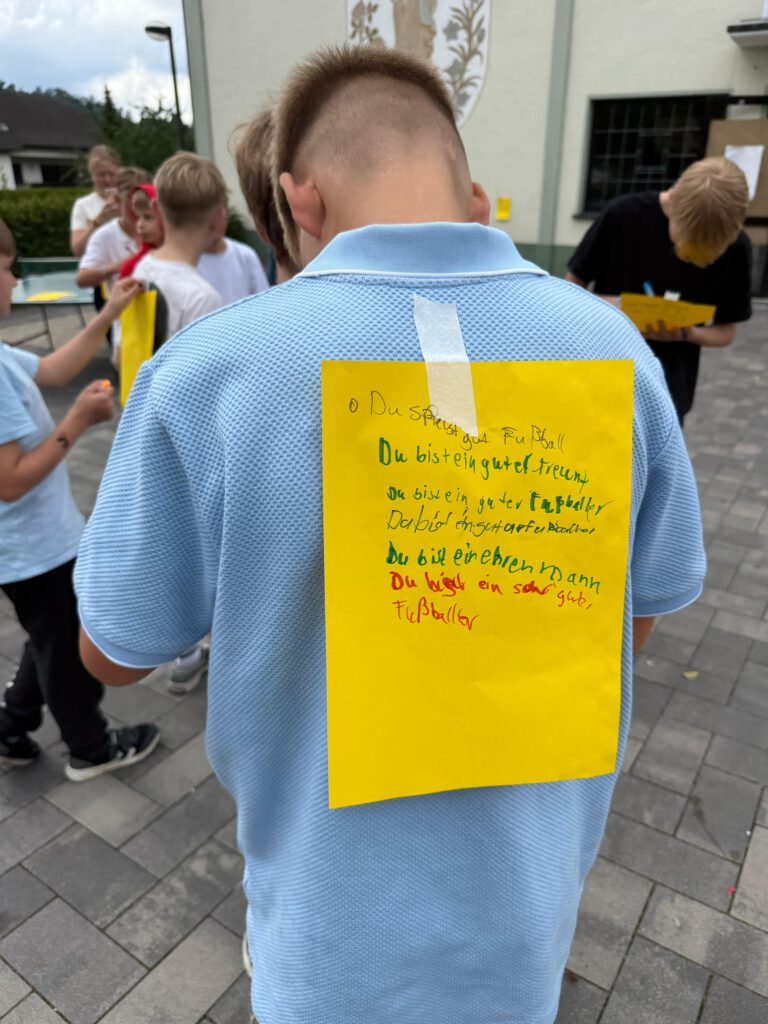 Du spielst gut Fußball
Du bist ein guter freunt
Du bist ein guter Fußballer
Du bist ein guter Fußballer
Du bist ein ehrenmann
Du bist ein sehr guter
Fußballer